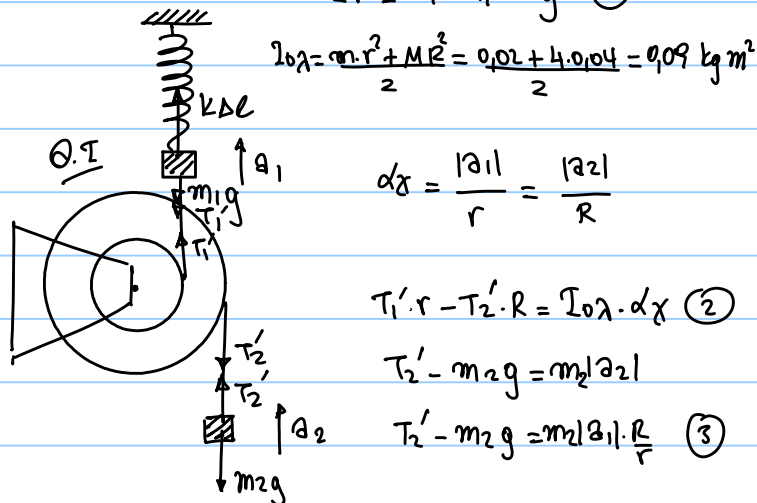 I₀λ = m·r² + MR² / 2 = 0,02 + 4·0,04 / 2 = 0,09 kg m²
KΔl
Q.I
a₁
m₁g
T₁'
T₁'
αγ = |a₁| / r = |a₂| / R
T₁'·r - T₂'·R = I₀λ·αγ ②
T₂'
T₂'
T₂' - m₂g = m₂|a₂|
a₂
T₂' - m₂g = m₂|a₁|·R/r ③
m₂g